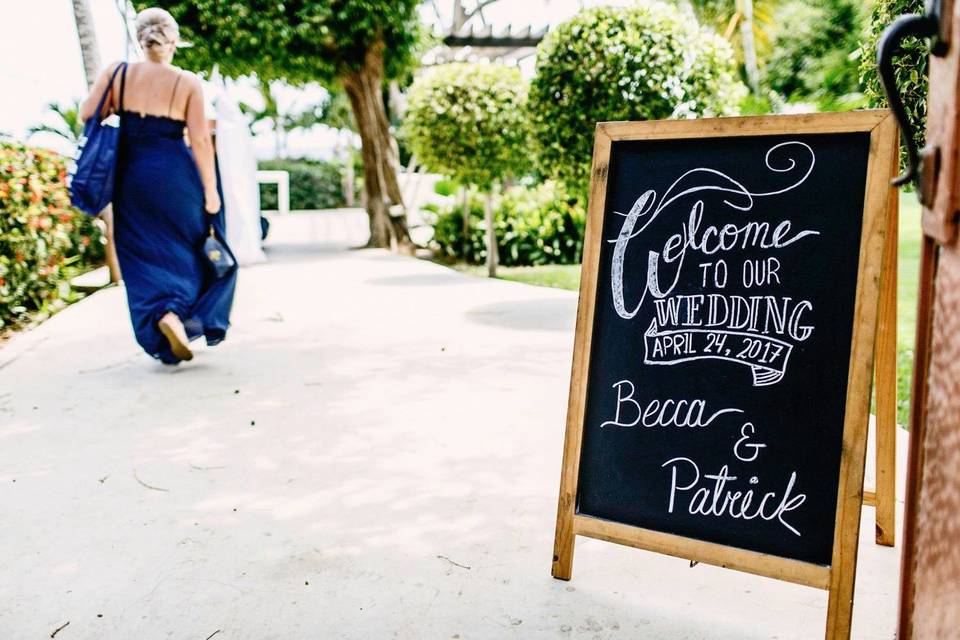 Welcome
TO OUR
WEDDING
APRIL 24, 2017
Becca
&
Patrick